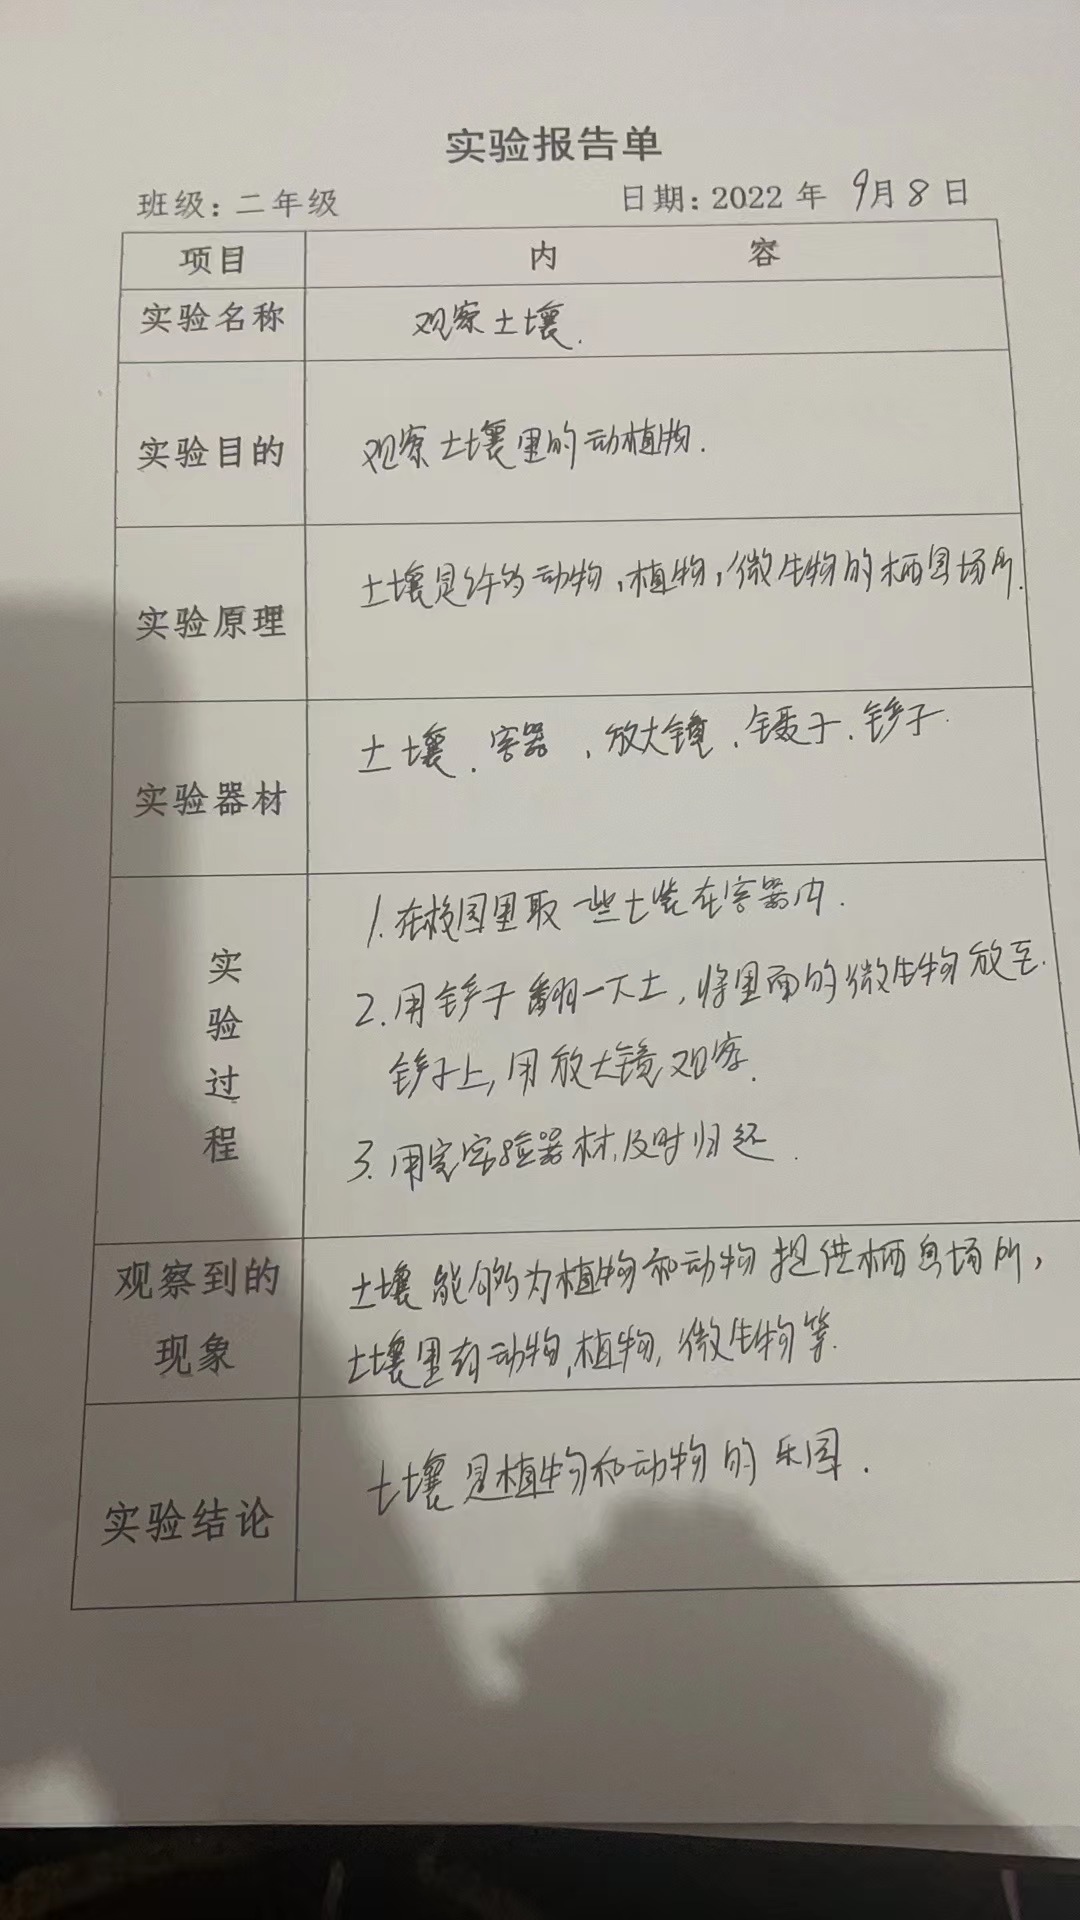 实验报告单
班级：二年级 日期：2022 年 9月8日
项目 内 容
实验名称 观察土壤.
实验目的 观察土壤里的动植物.
实验原理 土壤是许多动物,植物,微生物的栖息场所.
实验器材 土壤、容器、放大镜、镊子、铲子.
实验过程
1.在校园里取一些土装在容器内.
2.用铲子翻一下土,将里面的微生物放至
铲子上,用放大镜观察.
3.用完实验器材,及时归还.
观察到的现象
土壤能够为植物和动物提供栖息场所,
土壤里有动物,植物,微生物等.
实验结论 土壤是植物和动物的乐园.